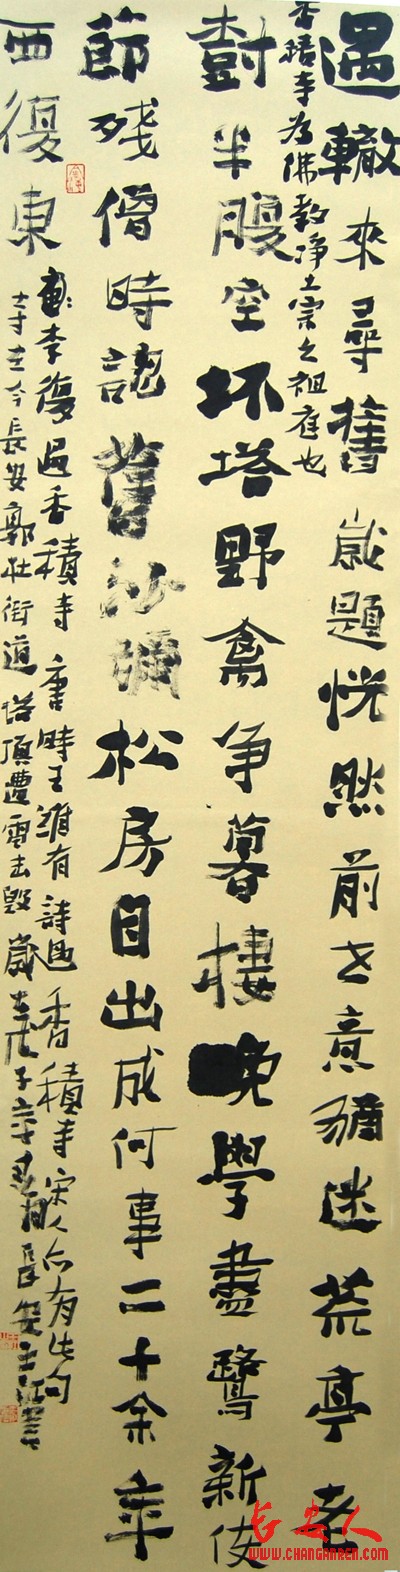 遇轍來尋舊歲題恍然前世意猶迷荒亭老
香積寺為佛教淨土宗之祖庭也
樹半腹空坏塔野禽爭暮棲晚學盡驚新使
節殘僧時認舊沙彌松房自出成何事二十余年
西復東
李復過香積寺唐時王維有詩過香積寺宋人亦有此句
寺在今長安郭杜街道塔頂遭雷击毁歲在戊子年春月長安
长安人
WWW.CHANGANREN.COM